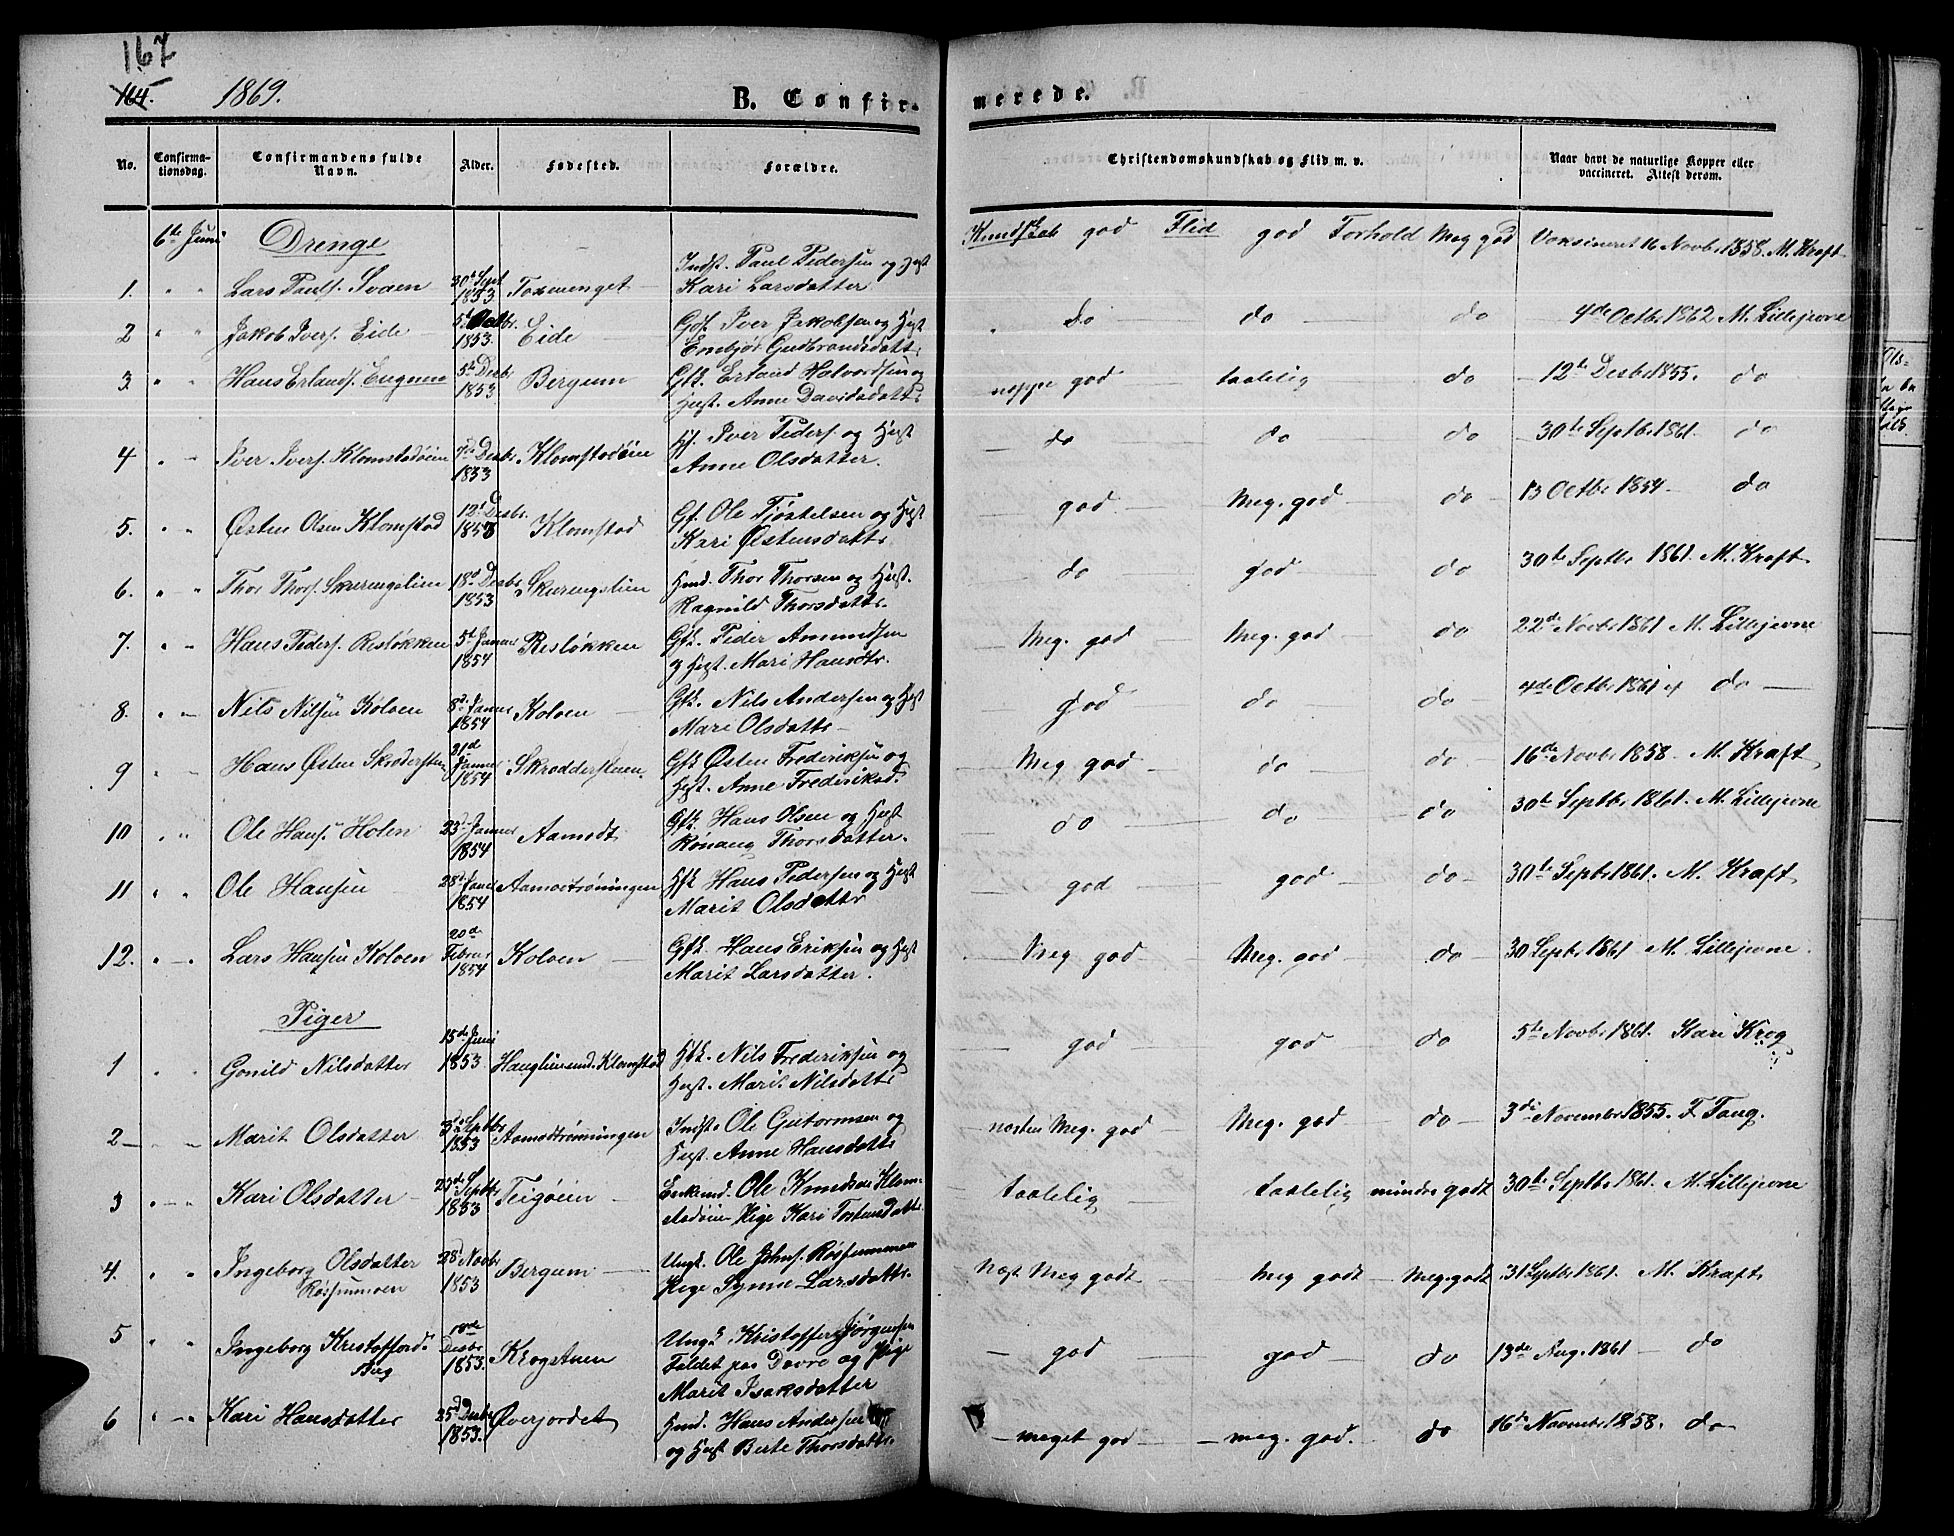 167
164. 1869. B. Confir- merede.
No. Confirma-tionsdag. Confirmandens fulde Navn. Alder. Fødested. Forældre. Christendomskundskab og Flid m. v. Naar havt de naturlige Kopper eller vaccineret. Attest derom.
6te Juni Drenge
1. " " Lars Pauls. Svaen 30te Sept 1853 Indst. Paul Pedersen og Hust Kari Larsdatter Kundskab god Flid god Forhold Meg god Vaksineret 16 Novbr 1858. M. Kraft
2 " " Jakob Ivers. Eide 5t Octbr. 1853. Eide Gdf. Iver Jakobsen og Hust Embjør Gudbrandsdattr do do do 4de Octbr 1862 M. Lillejevne
3 " " Hans Erlands. Bergum 5te Desbr 1853 Gfk. Erland Halvordsen og Hust. Anne Davidsdattr neppe god taalelig do 12te Desbr 1855. do
4 " " Iver Ivers. Klomstadøien 7de Desbr 1853 Klomstadøien Iver Peders. og Hust Anne Olsdatter. do do do 30te Septbr 1861. do
5. " " Østen Olsen Klomstad 12t Desbr. 1853 Klomstad Gf. Ole Tjøstelsen og Hust Kari Østensdattr god Meg. god do 13 Octbr 1854. do
6. " " Thor Thors. Skurengslien 18de Desbr 1853 Skurengslien Hmd. Thor Thorsen og Hust. Ragnild Thorsdattr. do god do 30te Septbr 1861. M. Kraft
7. " " Hans Peders. Resløkken 5t Januar 1854 Resløkken Gfk. Peder Amundsen og Hust. Mari Hansdtr. Meg. god Meg. god do 22de Novbr 1861 M. Lillejevne
8. " " Nils Nilsen Kolven 8de Januar 1854 Kolven Gfk. Nils Andersen og Hust Mari Olsdattr god do do 4de Octbr 1861 do
9 " Hans Østen Skrodderstuen 21d Januar 1854 Skrodderstuen Gfk Østen Frederiksen og Hust. Anne Frederiksd. Meg god do do 16de Novbr 1858. M. Kraft
10 " " Ole Hans. Holen 23d Januar 1854 Aamodt Gfk. Hans Olsen og Hust Rønaug Thorsdatter. do do do 30te Septbr 1861. M. Lillejevne
11 " " Ole Hansen 28d Januar 1854 Hans Pedersen og Hust Marit Olsdattr god god do 30te Septbr 1861. M. Kraft
12. " " Lars Hansen Kolven 20de Februar 1854 Kolven Gfk. Hans Eriksen og Hust Marit Larsdatter. Meg god Meg. god do 30 Septbr 1861 M. Lillejevne
Piger
1 " " Gonild Nilsdatter 15de Juni 1853 Klomstad Nils Frederiksen og Hust. Marit Nilsdattr god god do 5te Novbr 1861. Kari Krog
2 " " Marit Olsdatter 3de Septbr 1853 Indst. Ole Gutormsen og Hust. Anne Hansdattr næsten Meg. god Meg. god do 3die November 1855. F. Tang.
3 " " Kari Olsdatter 23de Septbr 1853 Teigøien Enkemd. Ole Knudsen Klomstadøien Pige Kari Tostensdattr taalelig taalelig mindre godt 30te Septbr 1861. M. Lillejevne
4. " " Ingeborg Olsdatter Røssummoen 28d Novbr 1853 Bergum Ungk. Ole Johns. Røssummoen Pige Synne Larsdattr. Næst. Meg godt Meg godt Meg. godt 31 Septbr 1861. M. Kraft
5 " " Ingeborg Kristoffersd. 18de Desbr 1853. Krogstuen Ungk. Kristoffer Jørgensen Faldet paa Dovre og Pige Marit Isaksdatter god god do 13de Aug. 1861 do
6 " " Kari Hansdatter 25d Desbr 1853. Øverjordet Hmd. Hans Andersen og Hust Berte Thorsdattr. meget god meg. god. do 16de November 1858. do